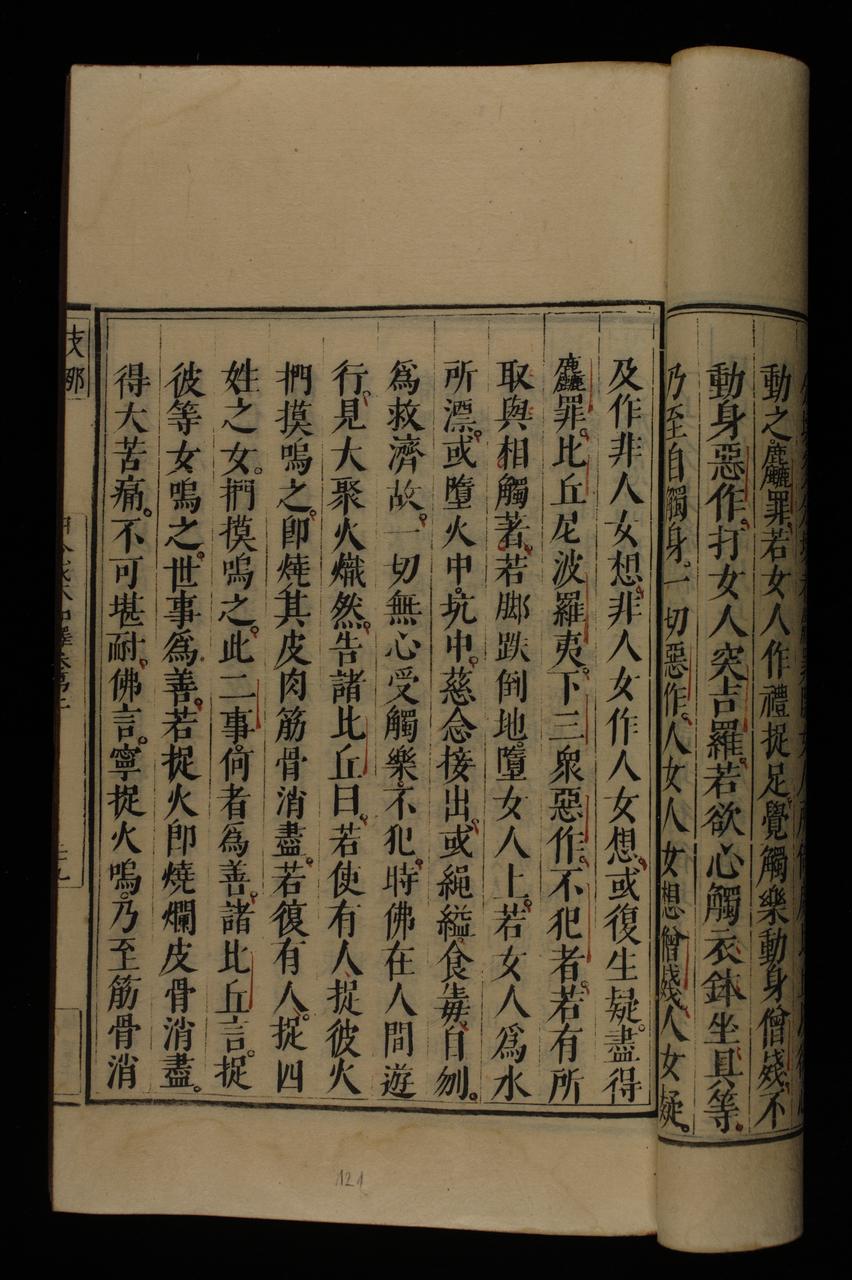 動之麤罪。若女人作禮捉足。覺觸樂動身僧殘。不
動身惡作。打女人突吉羅。若欲心觸衣鉢坐具等。
乃至自觸身。一切惡作。人女人女想僧殘。人女疑。
及作非人女想。非人女作人女想。或復生疑。盡得
麤罪。比丘尼波羅夷。下三衆惡作。不犯者。若有所
取與相觸著。若脚跌倒地。墮女人上。若女人爲水
所漂。或墮火中。坑中。慈念接出。或繩縊食毒自刎。
爲救濟故。一切無心受觸樂。不犯。時佛在人間遊
行。見大聚火熾然。告諸比丘曰。若使有人捉彼火
捫摸嗚之。卽燒其皮肉筋骨消盡。若復有人。捉四
姓之女。捫摸嗚之。此二事。何者爲善。諸比丘言。捉
彼等女嗚之。世事爲善。若捉火卽燒爛皮骨消盡。
得大苦痛。不可堪耐。佛言。寧捉火嗚。乃至筋骨消
支那
121